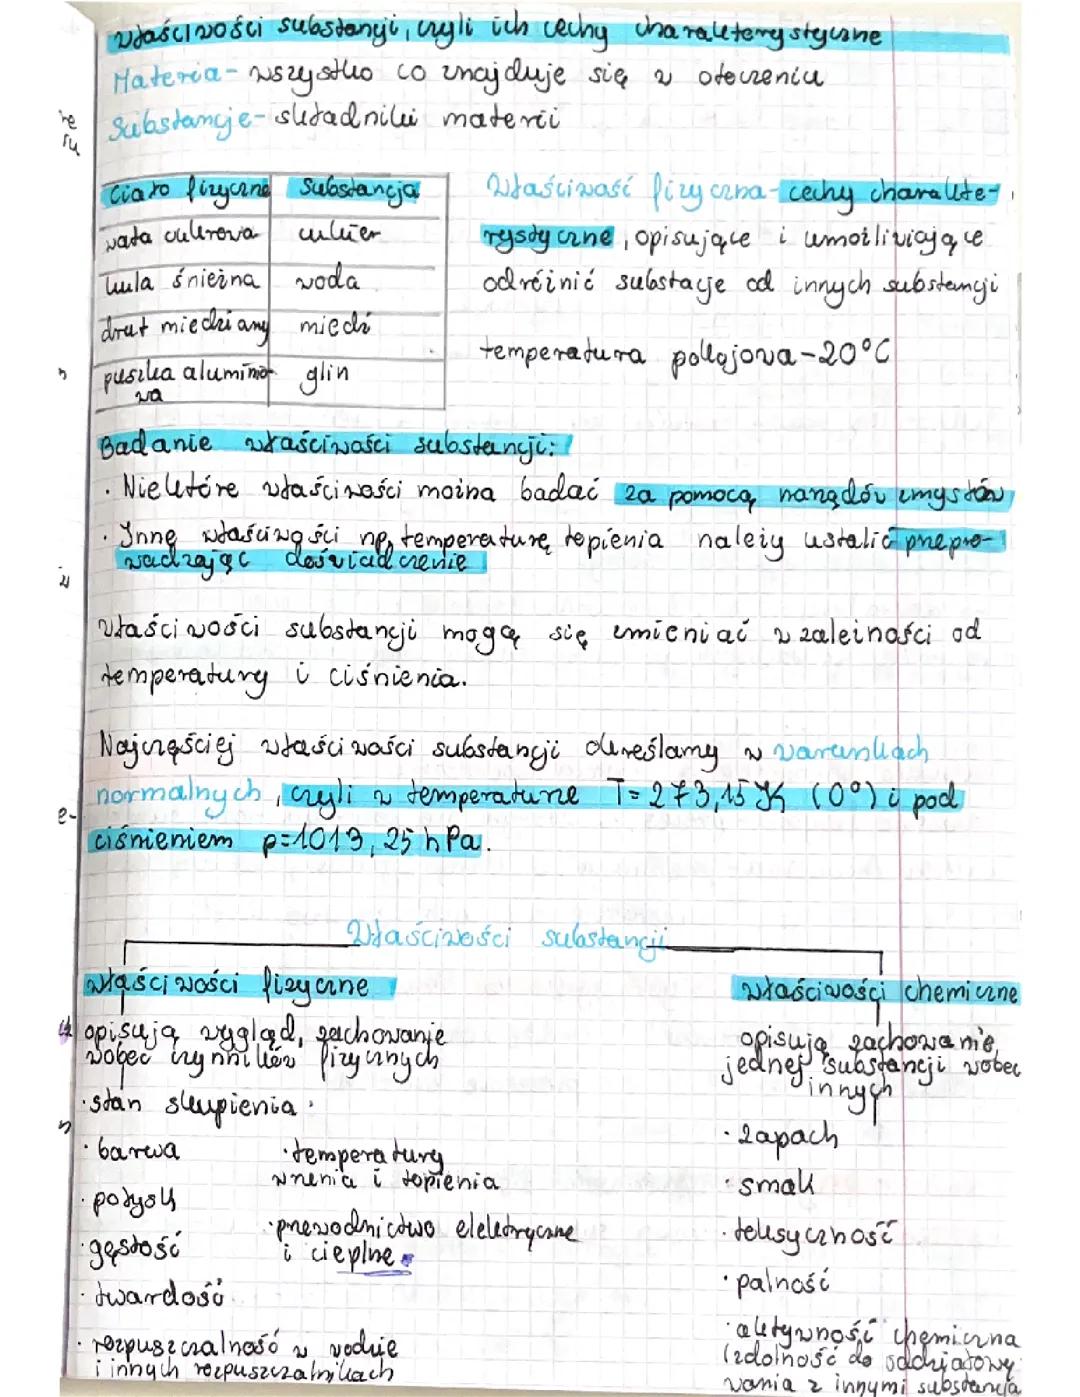 właściwości substancji, czyli ich cechy charakterystyczne
Materia - wszystko co znajduje się w otoczeniu
Substancje - składniki materii
Ciało fizyczne Substancja
wata cukrowa cukier
kula śnieżna woda
drut miedziany miedź
puszka alumino- glin
wa
Właściwość fizyczna - cechy charakte-
rystyczne, opisujące i umożliwiające
odróżnić substacje od innych substancji
temperatura pokojowa - 20°C
Badanie właściwości substancji:
· Niektóre właściwości można badać za pomocą narządów zmysłów
· Inne właściwości np. temperaturę topienia należy ustalić przepro-
wadzając doświadczenie
właściwości substancji mogą się zmieniać w zależności od
temperatury i ciśnienia.
Najczęściej właściwości substancji określamy w warunkach
normalnych, czyli w temperaturze T= 273,15 K (0°) i pod
ciśnieniem p=1013,25 hPa.
Właściwości substancji
właściwości fizyczne
opisują wygląd, zachowanie
wobec czynników fizycznych
· stan skupienia
· barwa
· połysk
· gęstość
· twardość
· rozpuszczalność w wodzie
i innych rozpuszczalnikach
· temperatury
wrzenia i topienia
· przewodnictwo elektryczne
i cieplne
właściwości chemiczne
opisują zachowanie
jednej substancji wobec
innych
· zapach
· smak
· toksyczność
· palność
· aktywność chemiczna
(zdolność do oddziaływy
wania z innymi substancja